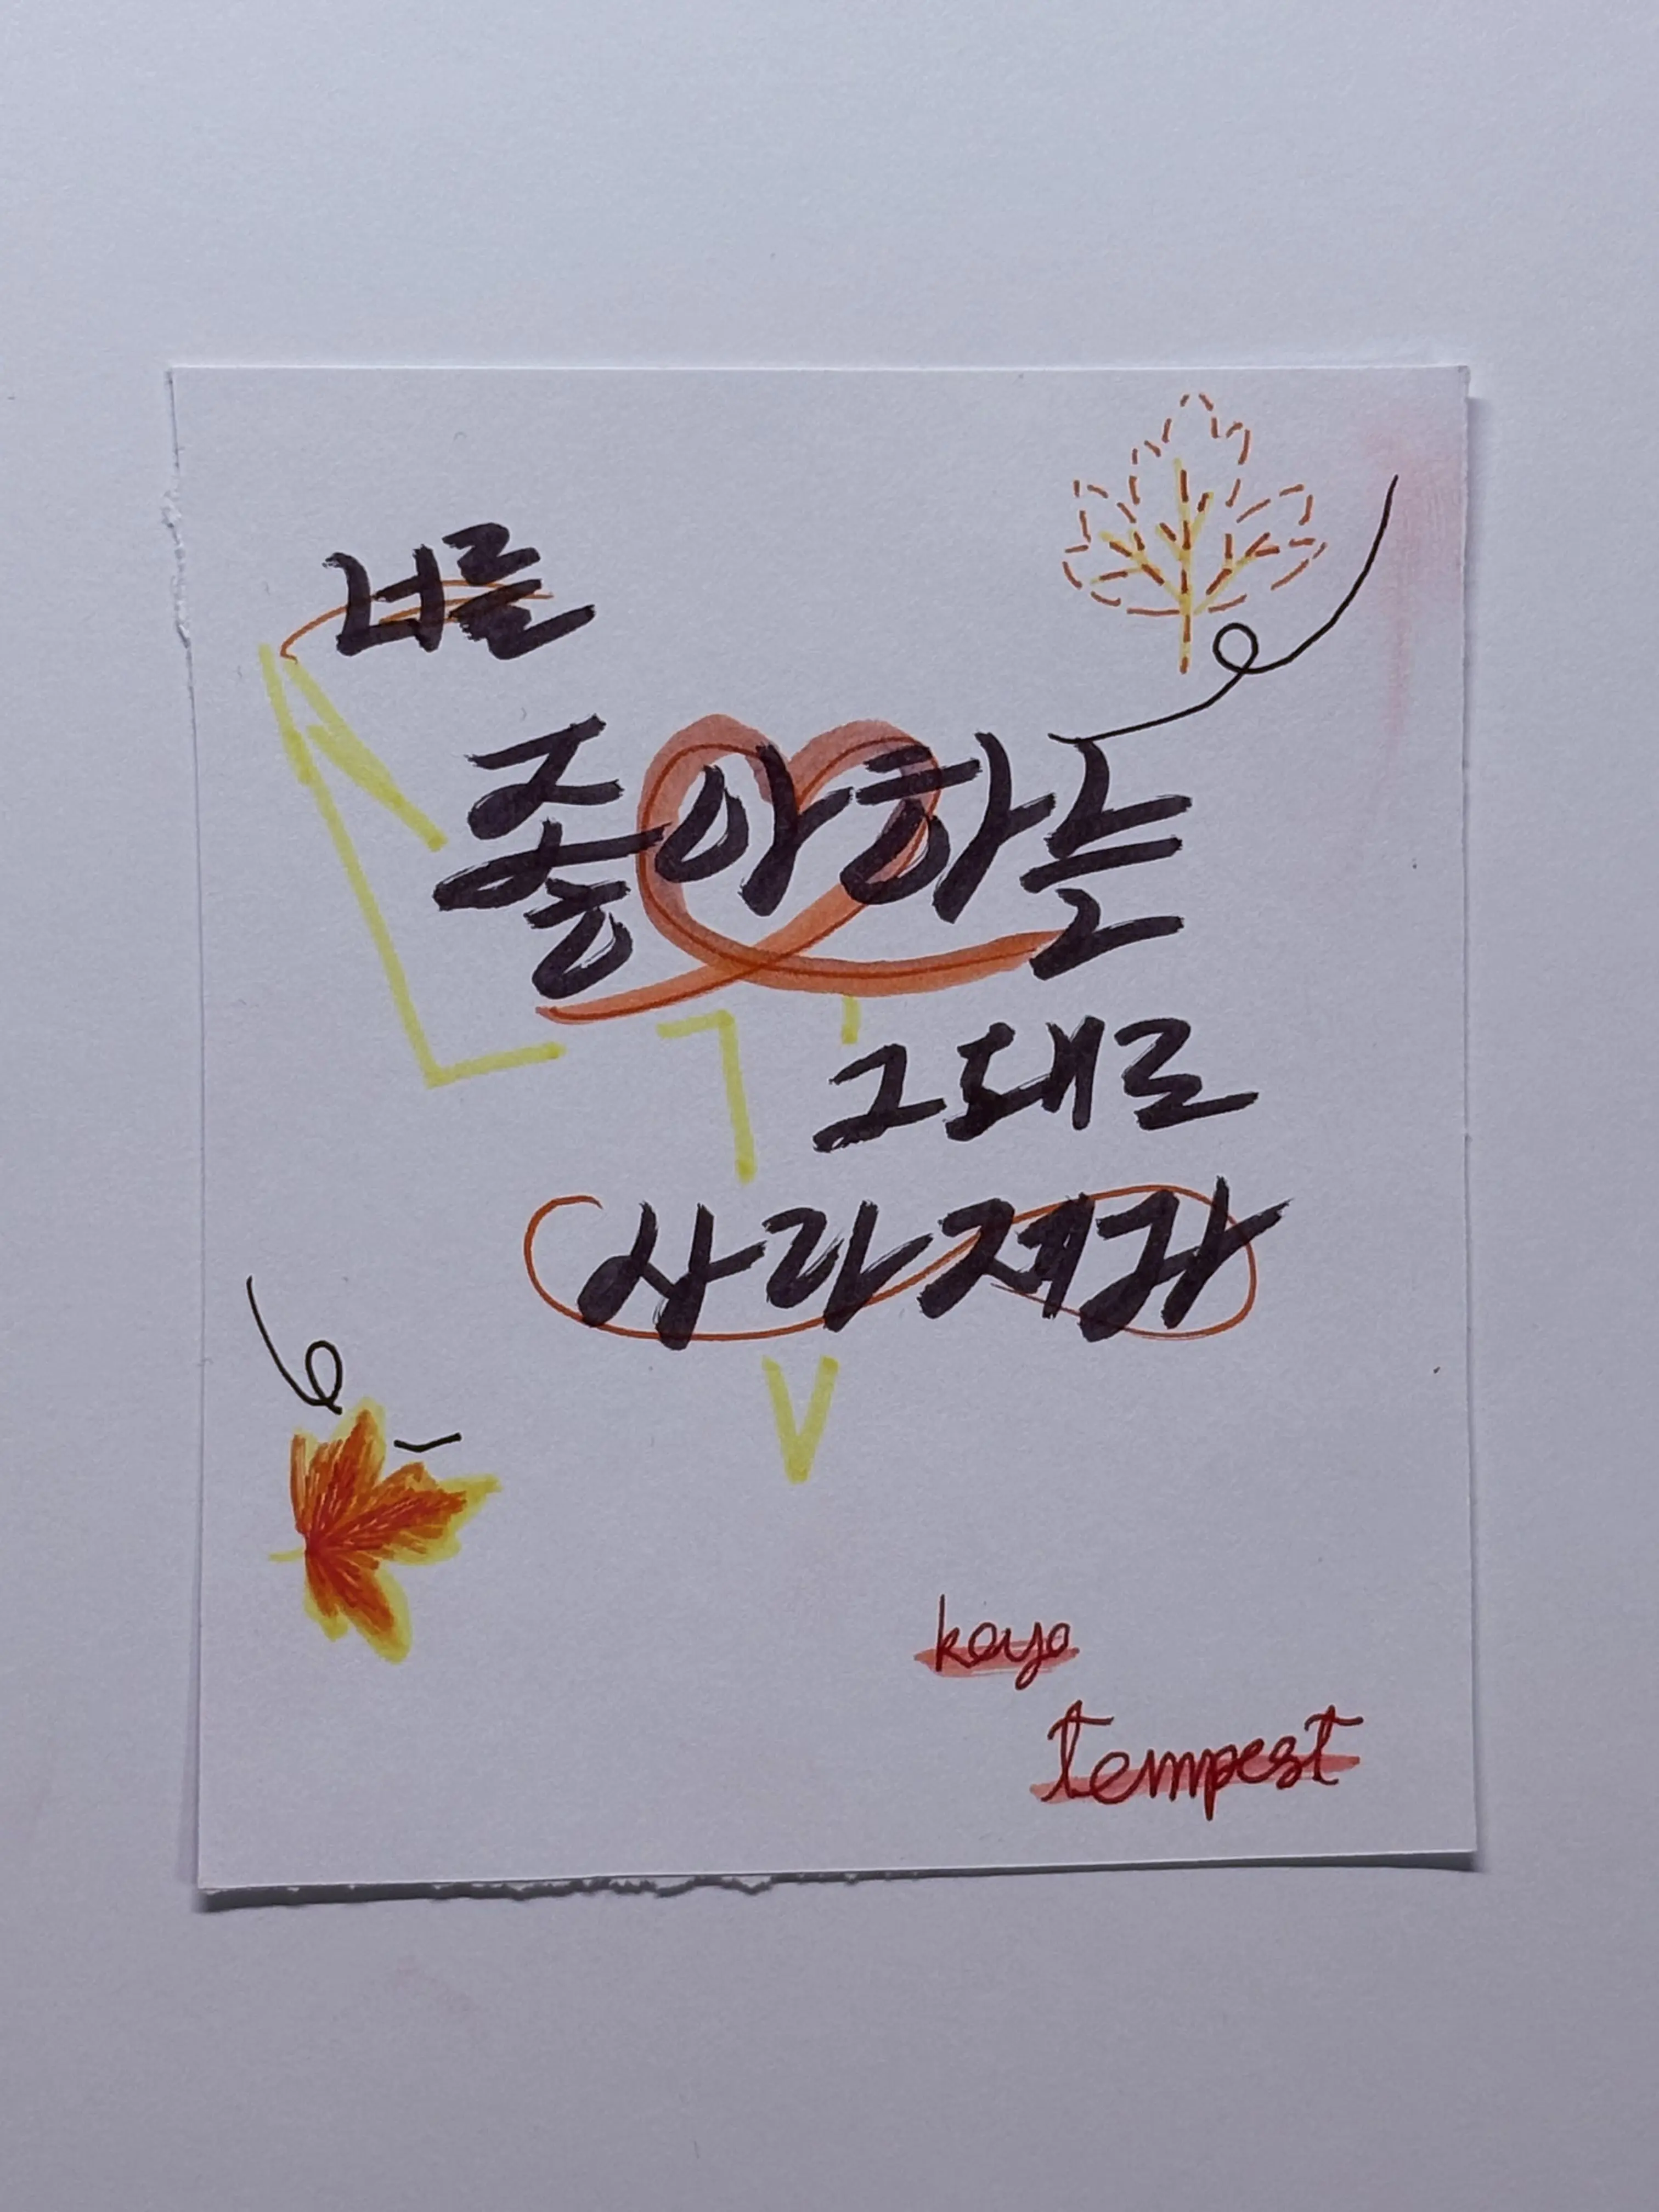 너를
좋아하는
그대로
사라져라
koyo
tempest